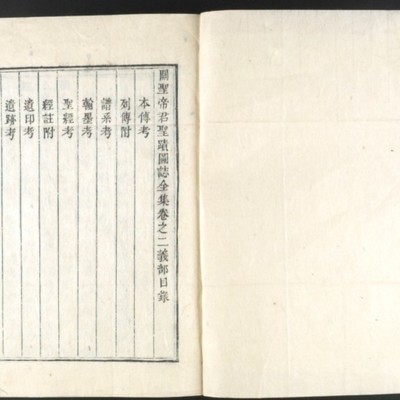 關聖帝君聖蹟圖誌全集卷之二義部目錄
本傳考
列傳附
譜系考
翰墨考
聖經考
經註附
遺印考
遺跡考